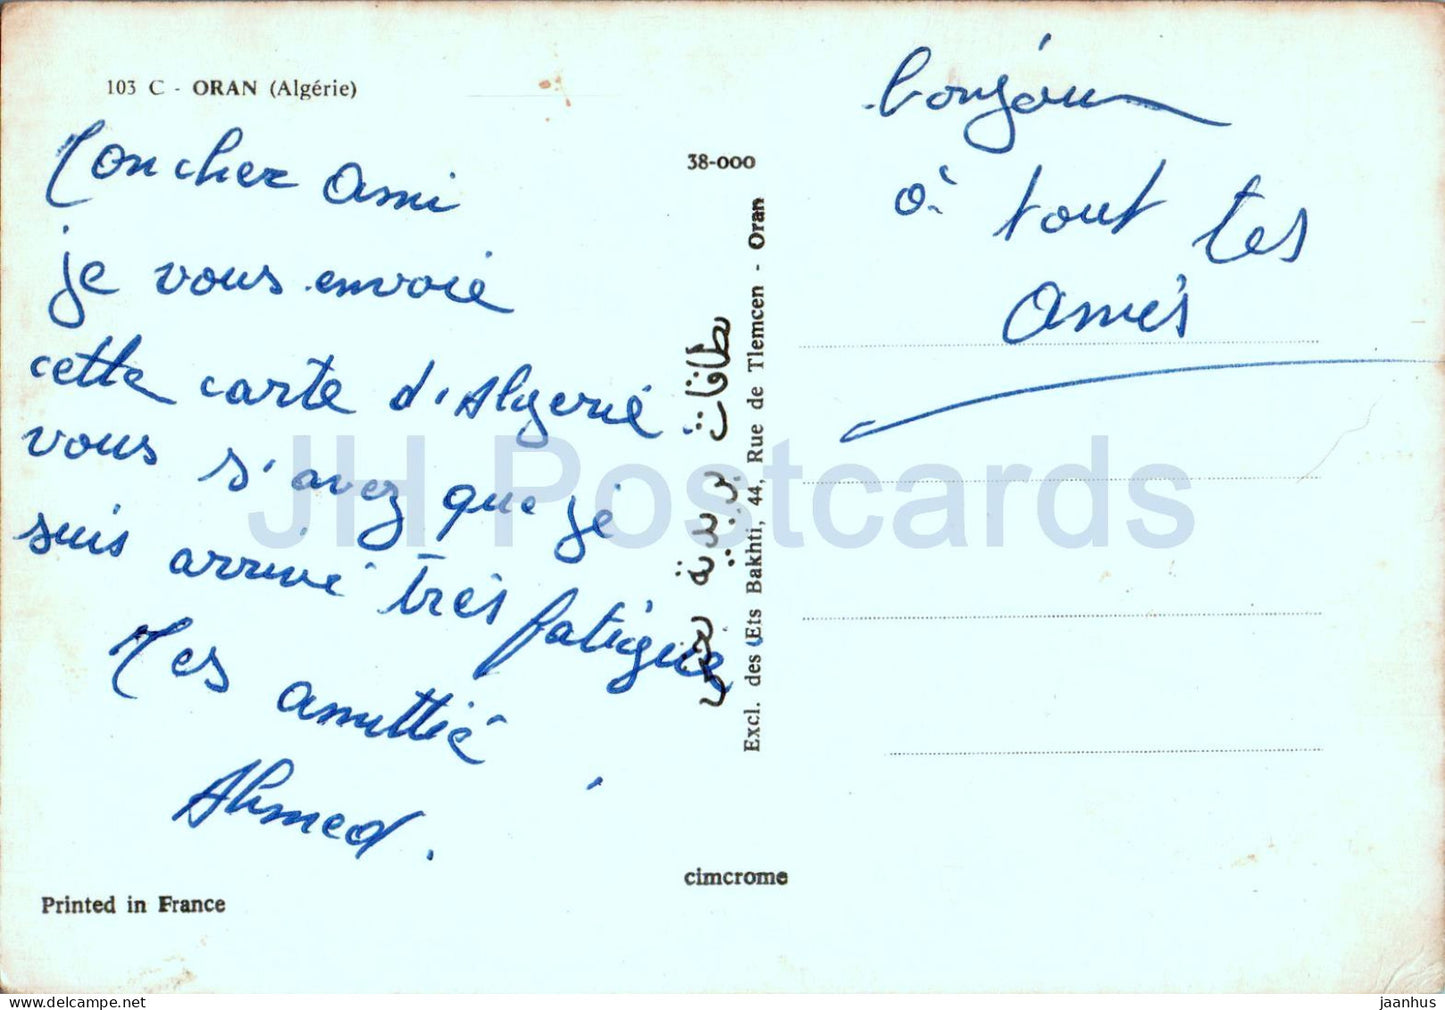 103 C - ORAN (Algérie)
Mon cher Ami
je vous envoie
cette carte d'Algerié
vous s'avez que je
suis arrivé très fatigué
Mes amittié
Ahmed.
Printed in France
38-000
بطاقات بريدية بختي
Excl. des Ets Bakhti, 44, Rue de Tlemcen - Oran
cimcrome
bonjour
à tout tes
Amis
JH Postcards
www.delcampe.net
jaanhus